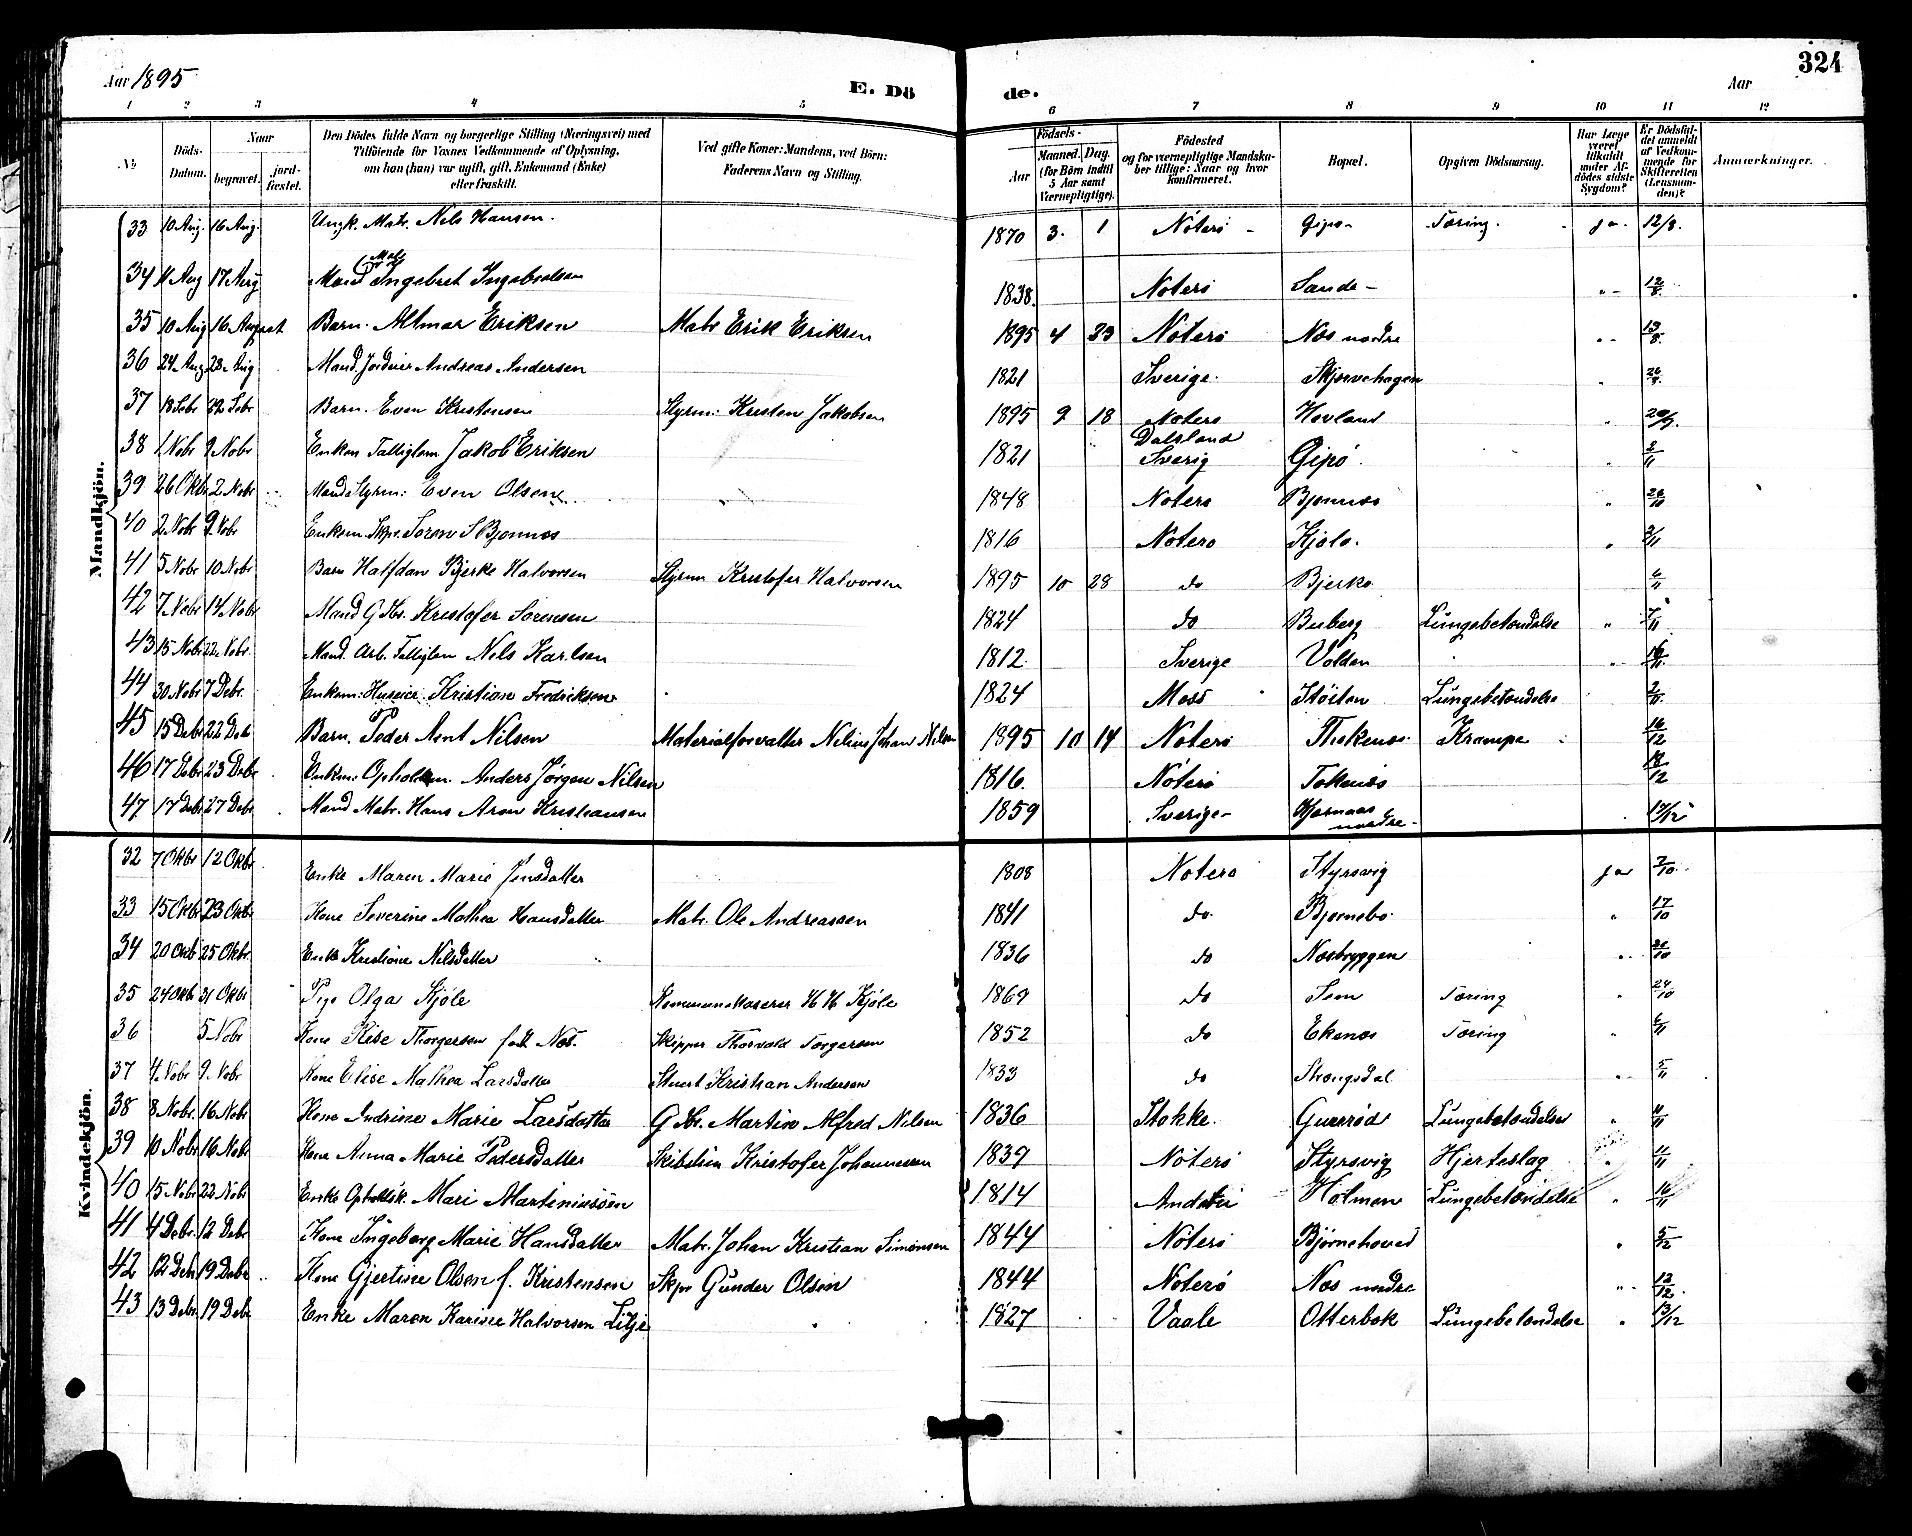 Aar 1895
E. Dö de.
Aar
324
1 2 3 4 5 6 7 8 9 10 11 12
No
Döds-Datum.
Naar begravet. jord-fæstet.
Den Dödes fulde Navn og borgerlige Stilling (Næringsvei) med Tilföiende for Voxnes Vedkommende af Oplysning, om han (hun) var ugift, gift, Enkemand (Enke) eller fraskilt.
Ved gifte Koner: Mandens, ved Börn: Faderens Navn og Stilling.
Födsels-
Aar
Maaned. Dag. (for Börn indtil 5 Aar samt Værnepligtige).
Födested og for værnepligtige Mandskaber tillige: Naar og hvor konfirmeret.
Bopæl.
Opgiven Dödsaarsag.
Har Læge været tilkaldt under Afdödes sidste Sygdom?
Er Dödsfaldet anmeldt af Vedkommende for Skifteretten (Lensmanden)?
Anmærkninger.
Mandkjön.
33 10 Aug. 16 Aug. Ungk. Matr. Nels Hansen. 1870 3. 1 Nöterö Gipö Tæring. ja 12/8.
34 11 Aug 17 Aug Mand Ingebret Ingebretsen 1838. Noterö Sande - " 12/8.
35 10 Aug 16 August Barn. Altmar Eriksen Matr Erik Eriksen 1895 4 23 Noterö Næs nordre " 13/8
36 24 Aug. 28 Aug Mand. Jordeier Andreas Andersen 1821 Sverige. Skjærvehagen " 26/8.
37 18 Sebr 22 Sebr Barn. Even Kristensen Styrm: Kristen Jakobsen 1895 9 18 Noterö Hovland " 20/9.
38 1 Nobr 9 Nobr Enkem Fattiglem Jakob Eriksen 1821 Dalsland Sverig Gipö. " 2/11
39 26 Oktb 2 Nobr Mand Styrm: Even Olsen 1848 Noterö Bjonnæs " 28/10
40 2 Nobr 9 Nobr Enkem. Skpr. Soren S Bjonnæs 1816 Noterö Kjole. " 2/11
41 5 Nobr 10 Nobr Barn Halfdan Bjerke Halvorsen Styrm Kristofer Halvorsen 1895 10 28 do Bjerke 6/11
42 7 Nobr 14 Nobr Mand G.br. Kristofer Sorensen 1824 do Buberg Lungebetændelse " 7/11
43 15 Nobr 22 Nobr Mand. Arb. Fattiglem Nels Karlsen 1812. Sverige Volden " 16/11
44 30 Nobr 7 Debr. Enkem: Huseier. Kristian Fredriksen 1824 Moss Stöiten Lungebetændelse
45 15 Debr 22 Debr Barn. Peder Arnt Nilsen Materialforvalter Nilius Johan Nilsen 1895 10 14 Nöterö Thekenæs. Krampe 16/12
46 17 Debr 23 Debr Enkm: Opholdsm. Anders Jørgen Nilsen 1816. Nöterö Tokenæs 18/12
47 17 Debr 27 Debr Mand Matr. Hans Aron Kristiansen 1859 Sverige Hjærnæs nordre 17/12
Kvindekjön.
32 7 Oktbr 12 Oktbr. Enke Maren Marie Jensdatter 1808 Noterö Styrsvig ja 7/10.
33 15 Oktbr 23 Oktb Kone Severine Mathea Hansdatter Matr. Ole Andreassen 1841 do. Bjornebo " 17/10
34 20 Oktb 25 Oktbr Enke Kristine Nilsdatter 1836 do Næsbryggen " 21/10
35 24 Oktb 31 Oktbr Pige Olga Kjöle Kommunekasserer H H Kjöle 1869 do Sem Tæring " 24/10
36 5 Nobr Kone Lise Thorgersen født Næs. Skipper Thorvald Torgersen 1852 do Ekenæs Tæring " 6/11
37 4 Nobr 9 Nobr Kone Elise Mathea Larsdatter Stuert Kristian Andersen 1833 do Strengsdal " 5/11
38 8 Nobr. 16 Nobr Kone Indrine Marie Larsdatter G.br. Martin Alfred Nilsen 1836 Stokke. Guerröd Lungebetændelse " 11/11
39 10 Nobr 16 Nobr Kone Anna Marie Pedersdatter Skibstim Kristofer Johannesen 1839 Noterö Styrsvig Hjerteslag " 11/11
40 15 Nobr 22 Nobr Enke Opholdsk. Mari Martiniussen 1814 Andebu Holmen Lungebetændelse " 16/11
41 4 Debr. 12 Debr. Kone Ingeborg Marie Hansdatter Matr. Johan Kristian Simonsen 1844 Nöterö Björnehoved " 5/12
42 12 Debr 19 Debr Kone Gjertine Olsen f. Kristensen Skpr Gunder Olsen 1844 Noterö Næs nordre " 12/12.
43 13 Debr. 19 Debr Enke Maren Karine Halvorsen Lilje 1827 Vaale Otterbæk Lungebetændelse " 13/12